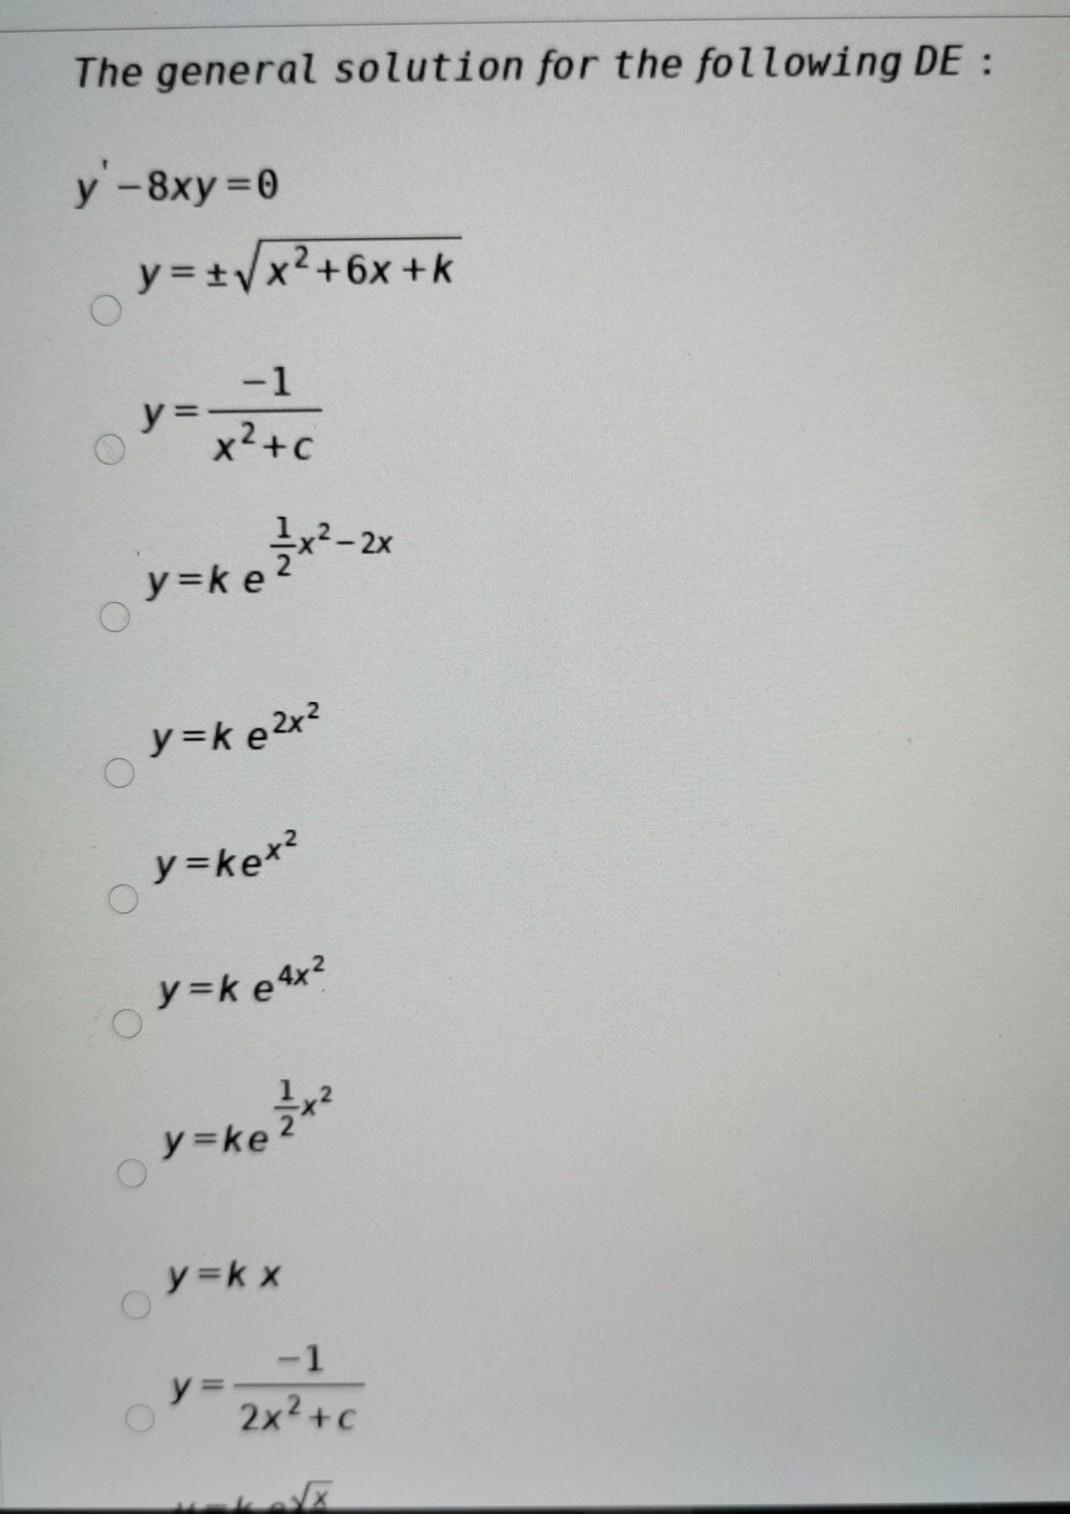 The general solution for the following DE :
y' − 8xy = 0
y = ±√(x² + 6x + k)
y = −1 / (x² + c)
y = k e^(½x² − 2x)
y = k e^(2x²)
y = k e^(x²)
y = k e^(4x²)
y = k e^(½x²)
y = k x
y = −1 / (2x² + c)